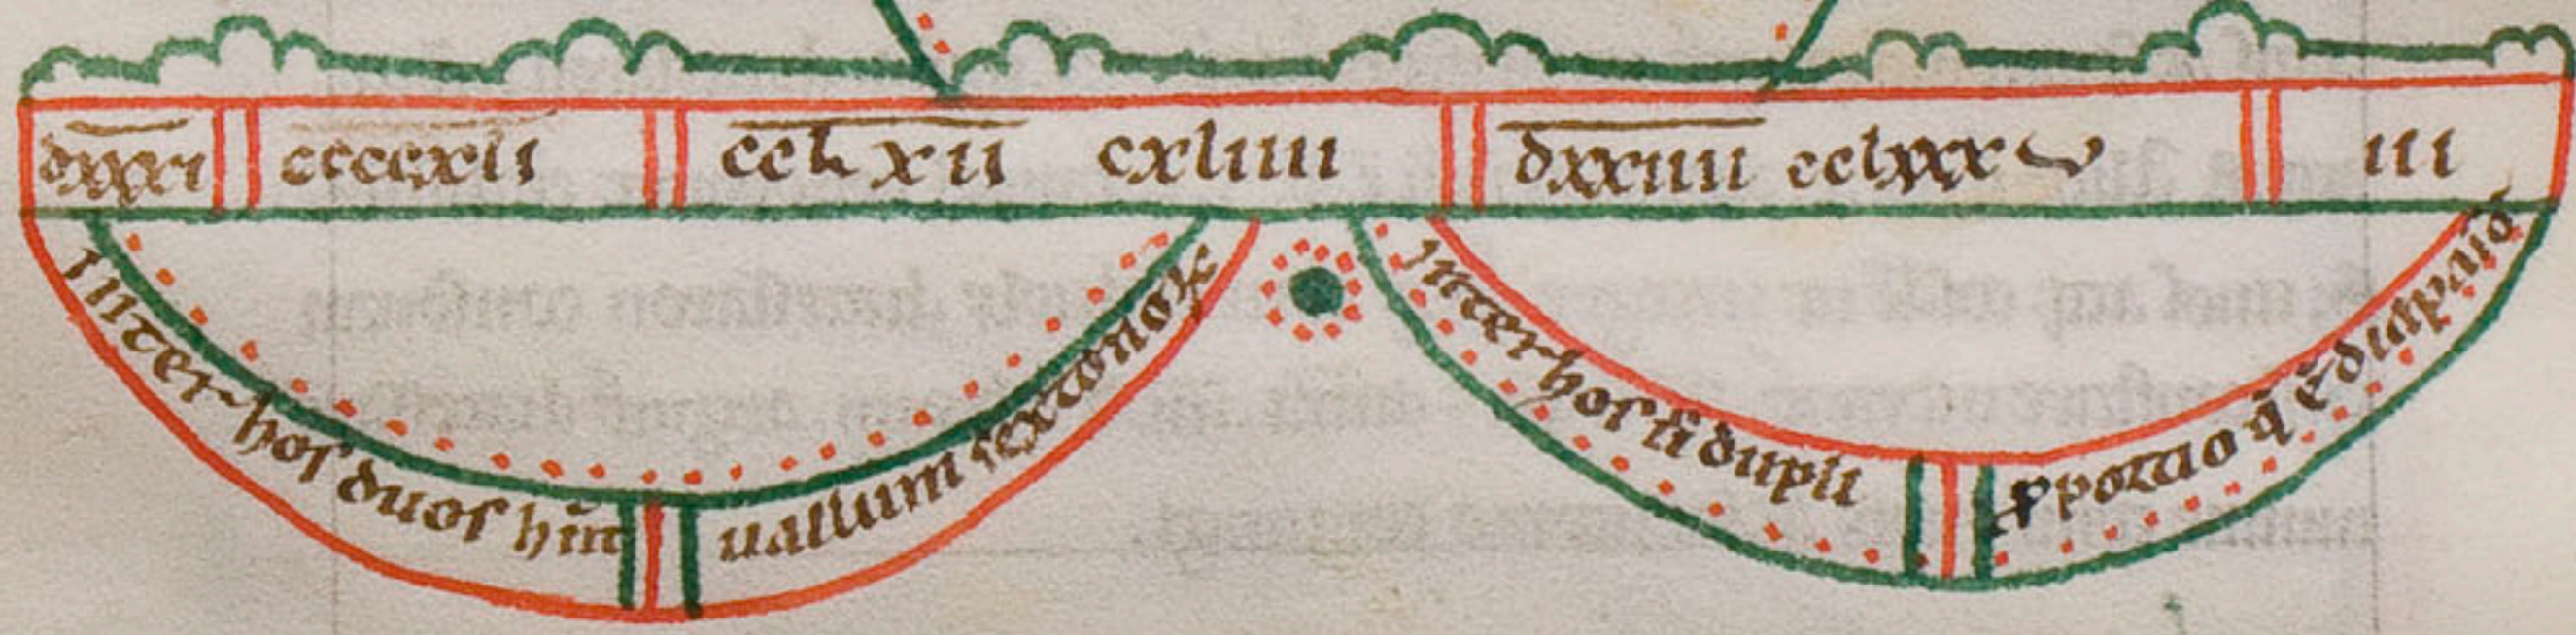 dxxxi ccccxli cclxii cxliiii dxxiiii cclxxxv iii
Inter hos duos hint̄ uallum sex tonoꝝ
Inter hos dupli ꝓportio q̄ ē